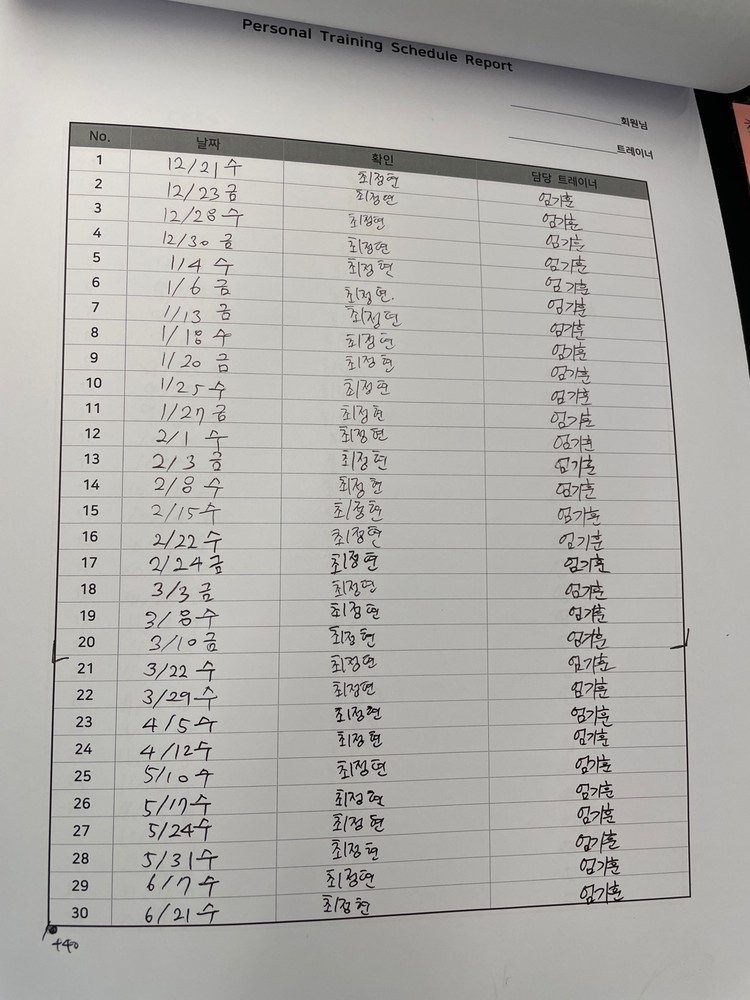 Personal Training Schedule Report
회원님
트레이너
No. 날짜 확인 담당 트레이너
1 12/21 수 최정현 엄기훈
2 12/23 금 최정현 엄기훈
3 12/28 수 최정현 엄기훈
4 12/30 금 최정현 엄기훈
5 1/4 수 최정현 엄기훈
6 1/6 금 최정현. 엄기훈
7 1/13 금 최정현 엄기훈
8 1/18 수 최정현 엄기훈
9 1/20 금 최정현 엄기훈
10 1/25 수 최정현 엄기훈
11 1/27 금 최정현 엄기훈
12 2/1 수 최정현 엄기훈
13 2/3 금 최정현 엄기훈
14 2/8 수 최정현 엄기훈
15 2/15 수 최정현 엄기훈
16 2/22 수 최정현 엄기훈
17 2/24 금 최정현 엄기훈
18 3/3 금 최정현 엄기훈
19 3/8 수 최정현 엄기훈
20 3/10 금 최정현 엄기훈
21 3/22 수 최정현 엄기훈
22 3/29 수 최정현 엄기훈
23 4/5 수 최정현 엄기훈
24 4/12 수 최정현 엄기훈
25 5/10 수 최정현 엄기훈
26 5/17 수 최정현 엄기훈
27 5/24 수 최정현 엄기훈
28 5/31 수 최정현 엄기훈
29 6/7 수 최정현 엄기훈
30 6/21 수 최정현 엄기훈
+40